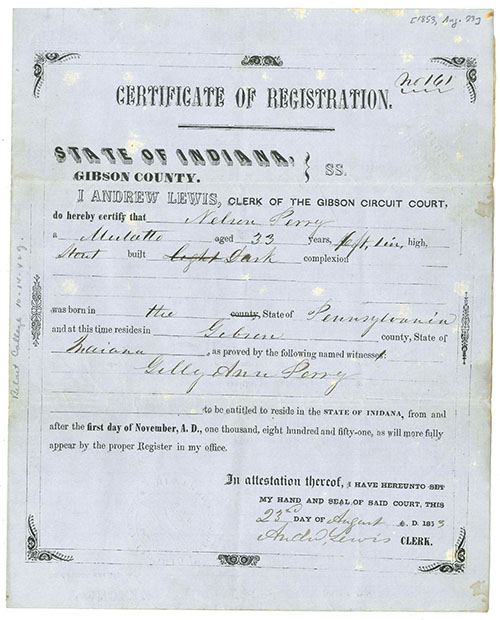 [1853, Aug. 23]
No 161
CERTIFICATE OF REGISTRATION.
STATE OF INDIANA, } SS.
GIBSON COUNTY.
I ANDREW LEWIS, CLERK OF THE GIBSON CIRCUIT COURT,
do hereby certify that Nelson Perry
a Mulatto aged 33 years, feet, in, high,
Stout built Light Dark complexion
was born in the county, State of Pennsylvania
and at this time resides in Gibson county, State of
Indiana, as proved by the following named witness:
Gilly Ann Perry
to be entitled to reside in the STATE OF INIDANA, from and
after the first day of November, A. D., one thousand, eight hundred and fifty-one, as will more fully
appear by the proper Register in my office.
In attestation thereof, I HAVE HEREUNTO SET
MY HAND AND SEAL OF SAID COURT, THIS
23rd DAY OF August A. D. 1853
Andw Lewis CLERK.